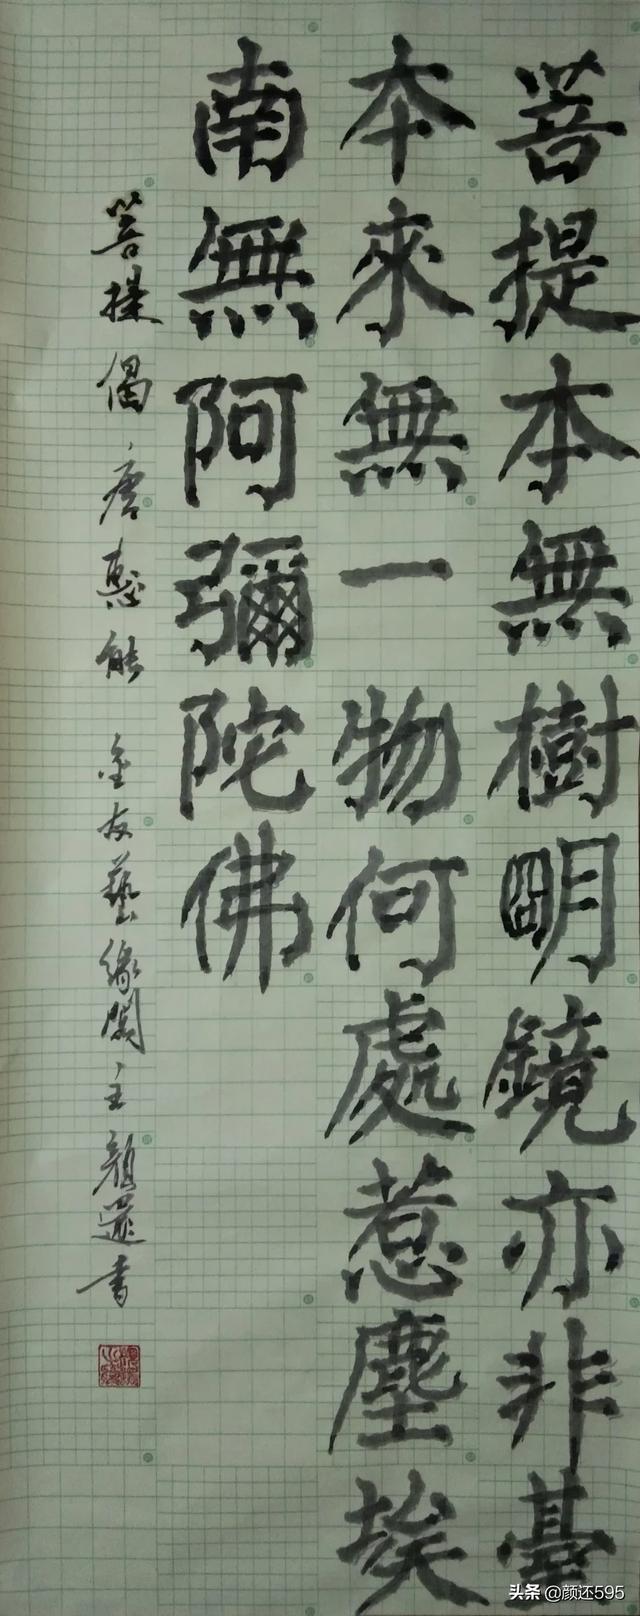 菩提本無樹明鏡亦非臺
本來無一物何處惹塵埃
南無阿彌陀佛
菩提偈、唐惠能 金友藝緣閣主顏還書
头条 @颜还595